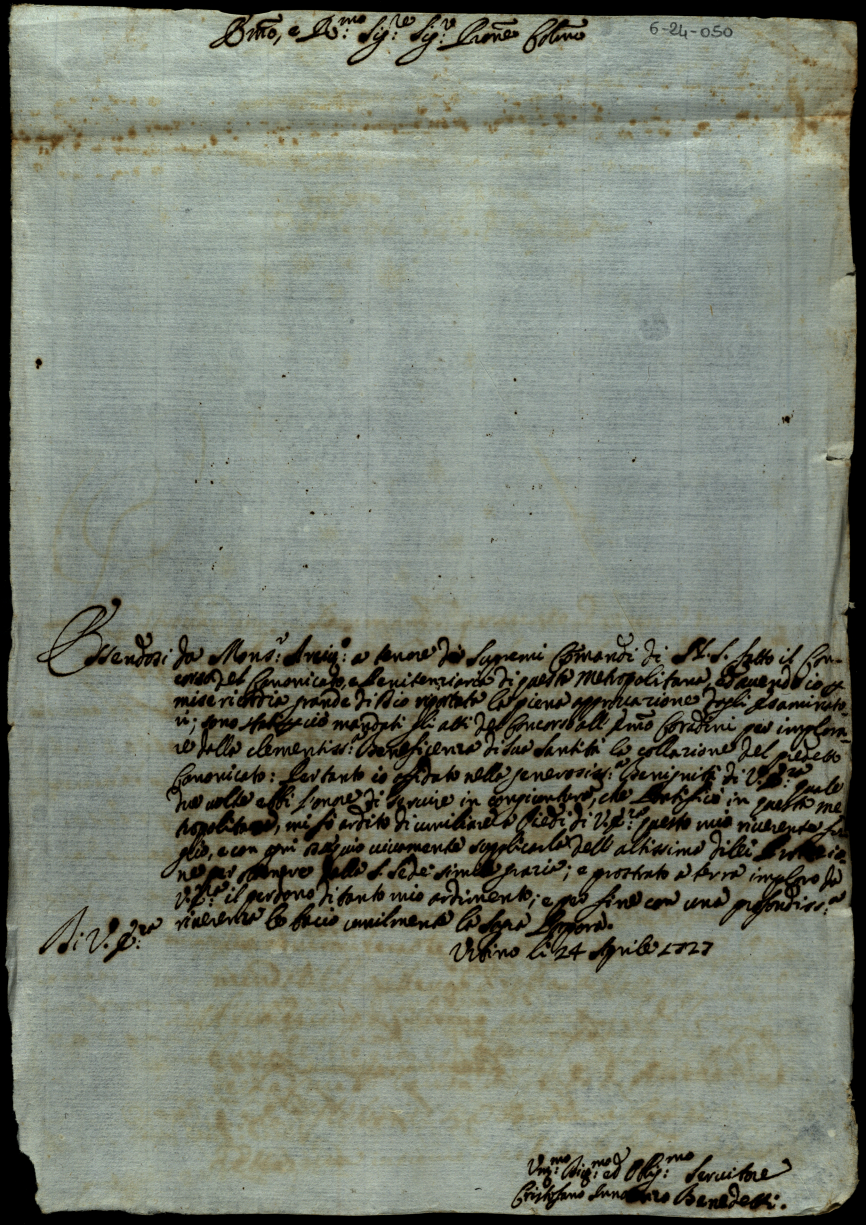 Emo, e Rmo: Sigre Sigre Prone Colmo
6-24-050
Essendosi da Monsr: Arcivo: a tenore de Supremi Comandi di N. S. fatto il Con-
corso del Canonicato, e Penitenziaria di questa Metropolitana, ed avendo io p
misericordia grande di Dio riportata la piena approvazione degli Esaminato-
ri; sono stati mandati gli atti del Concorso all' Emo Coradini per implora-
re dalla clementissa: Beneficenza di Sua Santità la collazione del predetto
Canonicato: Pertanto io affidato nella generosissa: Benignità di V. Eza: quale
due volte ebbi l'onore di servire in congiuntura, che Pontificò in questa Me
tropolitana, mi fò ardito di umiliare a Piedi di V. Eza: questo mio riverente fo
glio, e con ogni ossequio vivamente supplicarla dell' altissima di lei Protezio
ne per ottenere dalla S. Sede simile grazia; e prostrato a terra imploro da
V. Eza: il perdono di tanto mio ardimento; e per fine con una profondissa:
riverenza le bacio umilmente la Sagra Porpora.
Di V. Eza:
Urbino li 24 Aprile 1727
Umo: Divmo: ed Obligmo: Servitore
Cristofano Benedetti.